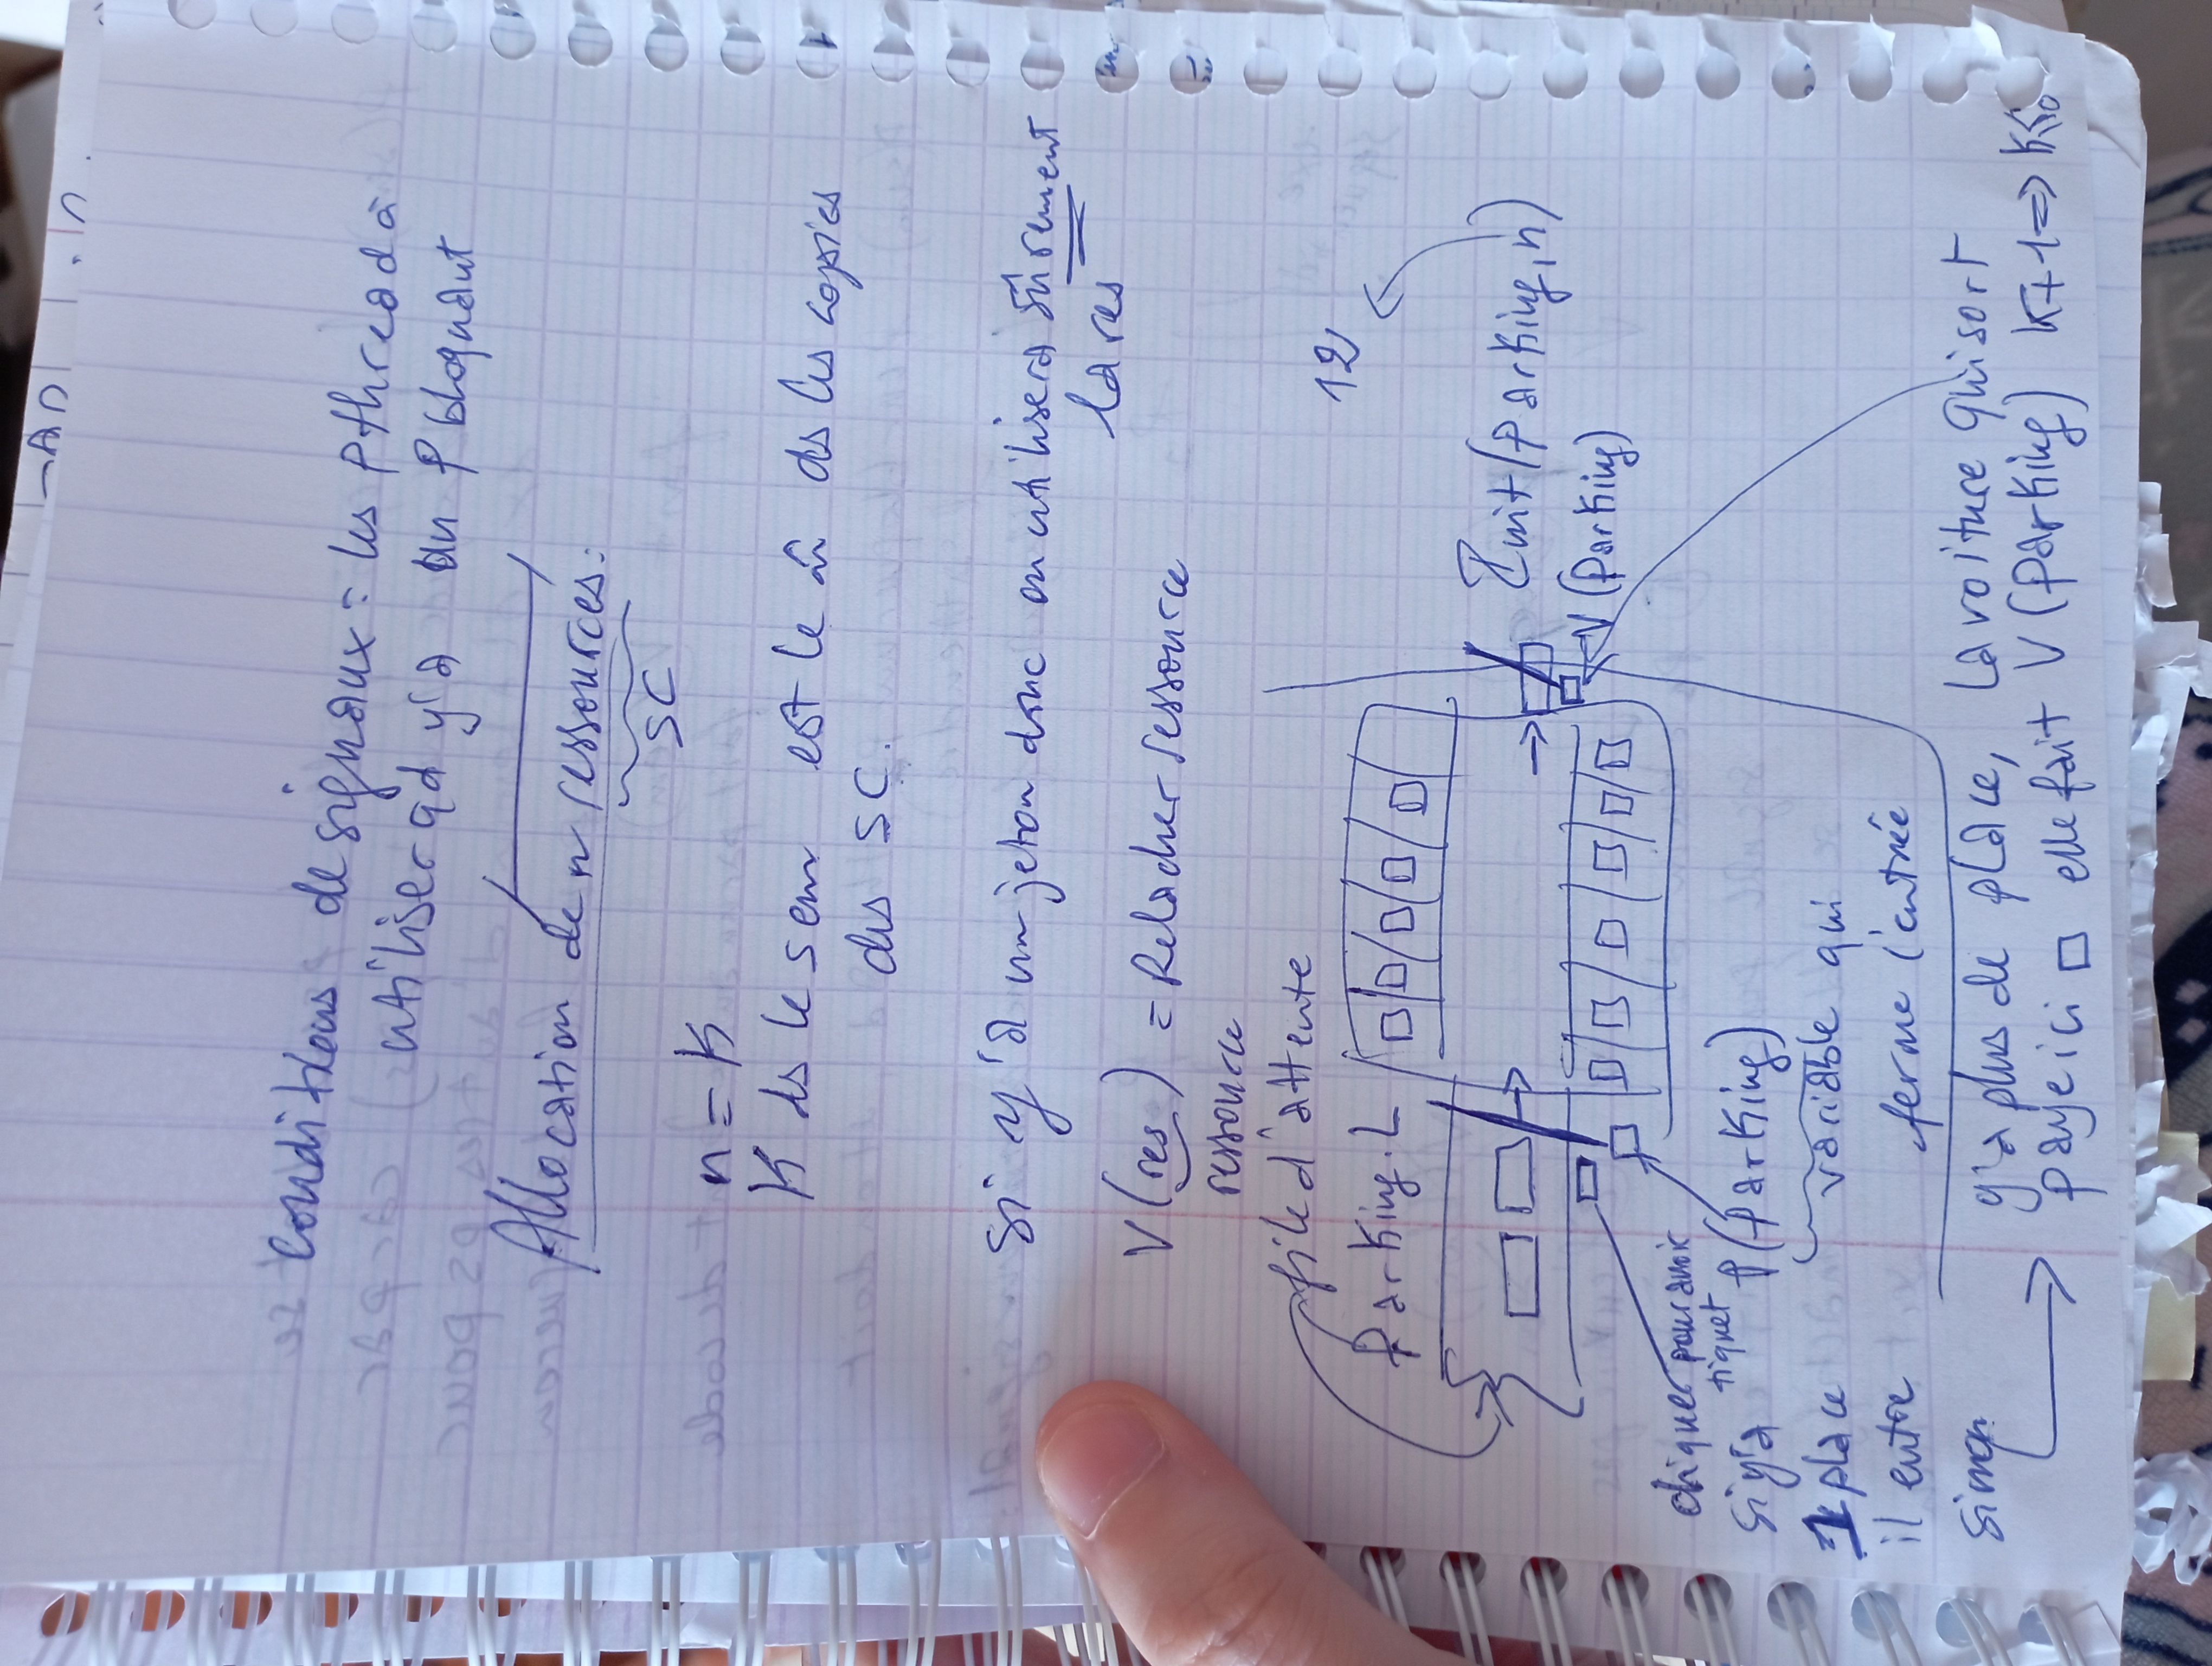 conditions de signaux = les pthread à
utiliser qd y'a un P bloquant
Allocation de n ressources :
SC
n = K
K ds le sem est le m̂ ds les copies
des SC.
si y'a un jeton donc on utilisera sûrement
la res
V(res) = Relacher ressource
ressource
file d'attente
Parking.L
12
Init(Parking, n)
V(Parking)
cliquer pour avoir
tiquet
si y'a
P(Parking)
1 place
variable qui
il entre
ferme l'entrée
sinon
y'a plus de place, La voiture qui sort
paye ici elle fait V(Parking) K+1 => K≤0